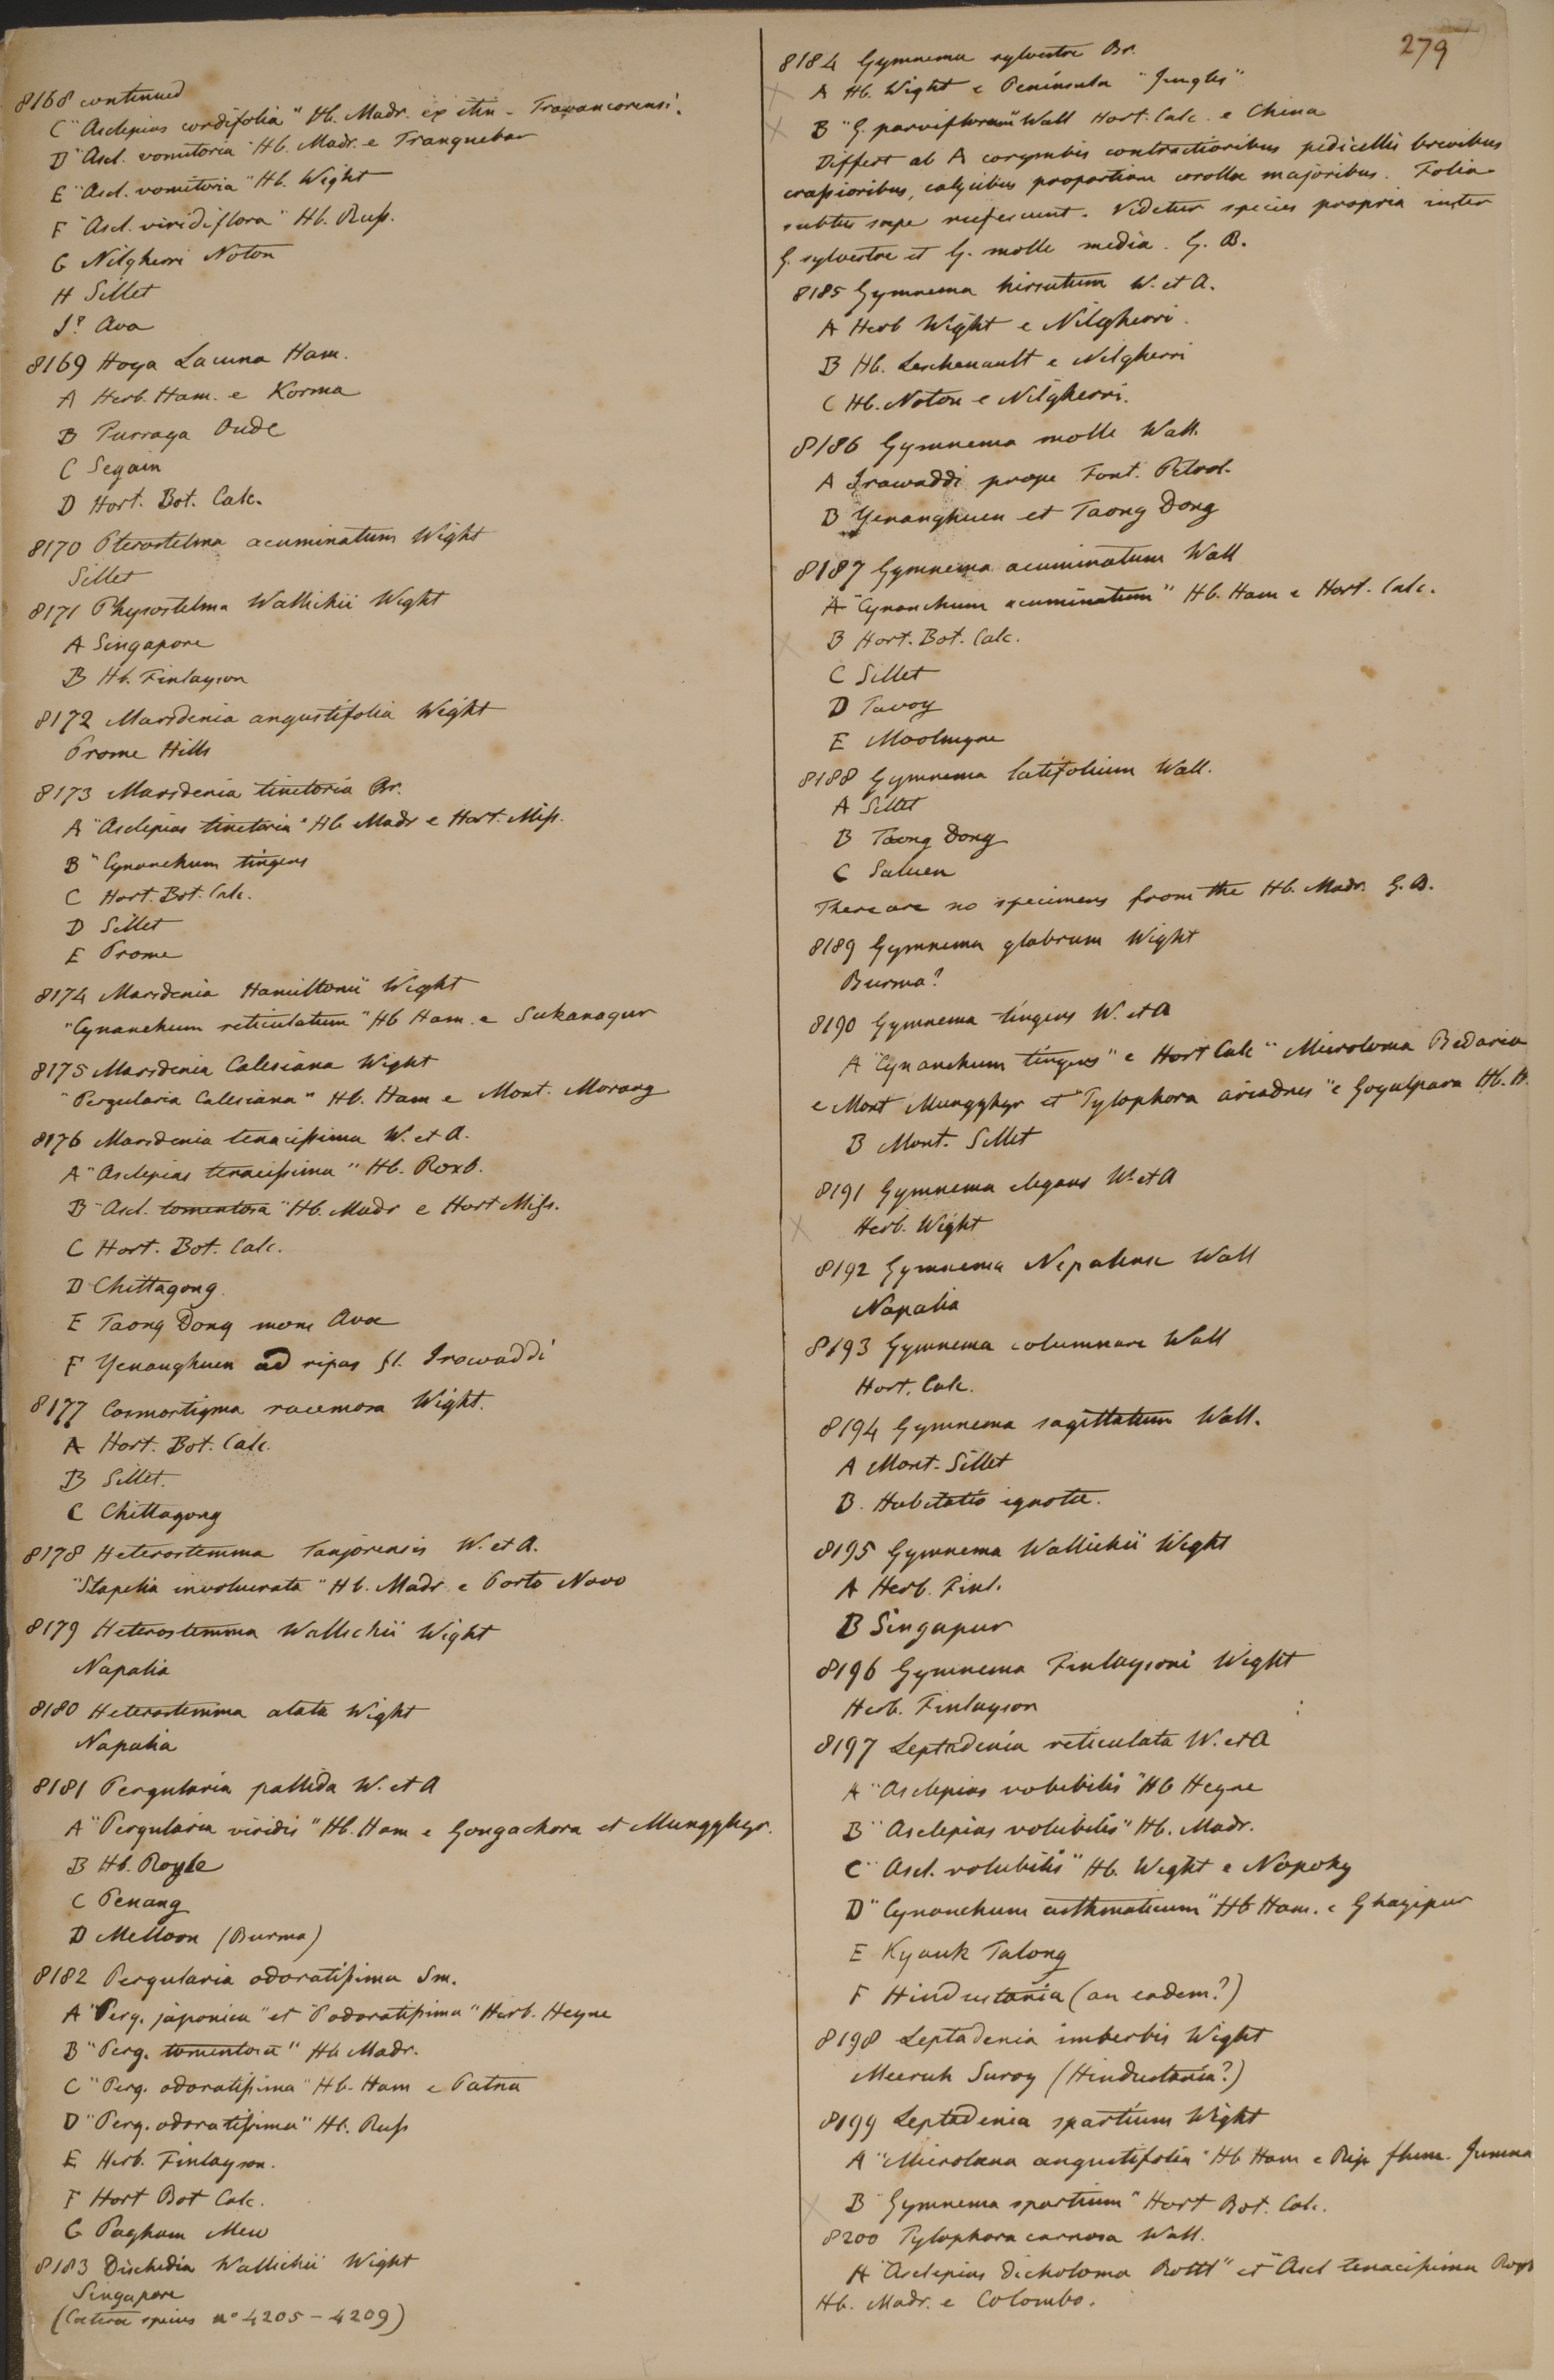 279
8168 continued
C "Asclepias cordifolia" Hb. Madr. ex itin. Travancorensi.
D "Ascl. vomitoria" Hb. Madr. e Tranquebar
E "Ascl. vomitoria" Hb. Wight
F "Ascl. viridiflora" Hb. Russ.
G Nilgherri Noton
H Sillet
I? Ava
8169 Hoya Lacuna Ham.
A Herb. Ham. e Korma
B Purraya Oude
C Segain
D Hort. Bot. Calc.
8170 Pterostelma acuminatum Wight
Sillet
8171 Physostelma Wallichii Wight
A Singapore
B Hb. Finlayson
8172 Marsdenia angustifolia Wight
Prome Hills
8173 Marsdenia tinctoria Br.
A "Asclepias tinctoria" Hb Madr e Hort. Miss.
B "Cynanchum tingens
C Hort. Bot. Calc.
D Sillet
E Prome
8174 Marsdenia Hamiltonii Wight
"Cynanchum reticulatum" Hb Ham. e Sukanagur
8175 Marsdenia Calesiana Wight
"Pergularia Calesiana" Hb. Ham e Mont. Morang
8176 Marsdenia tenacissima W. et A.
A "Asclepias tenacissima" Hb. Roxb.
B "Ascl. tomentosa" Hb. Madr e Hort Miss.
C Hort. Bot. Calc.
D Chittagong.
E Taong Dong mons Avae
F Yenanghuen ad ripas fl. Irawaddi
8177 Cosmostigma racemosa Wight.
A Hort. Bot. Calc.
B Sillet.
C Chittagong
8178 Heterostemma Tanjorensis W. et A.
"Stapelia involucrata" Hb. Madr. e Porto Novo
8179 Heterostemma Wallichii Wight
Napalia
8180 Heterostemma alata Wight
Napalia
8181 Pergularia pallida W. et A
A "Pergularia viridis" Hb. Ham e Gongachora et Mungghyr.
B Hb. Royle
C Penang
D Melloon (Burma)
8182 Pergularia odoratissima Sm.
A "Perg. japonica" et "P odoratissima" Herb. Heyne
B "Perg. tomentosa" Hb Madr.
C "Perg. odoratissima" Hb. Ham e Patna
D "Perg. odoratissima" Hb. Russ
E Herb. Finlayson.
F Hort Bot Calc.
G Pagham Mew
8183 Dischidia Wallichii Wight
Singapore
(Caetera species no 4205 - 4209)
8184 Gymnema sylvestre Br.
A Hb. Wight e Peninsula "Jungles"
B "G. parviflorum" Wall Hort. Calc. e China
Differt ab A corymbis contractioribus pedicellis brevibus
crassioribus, calycibus proportione corollae majoribus. Folia
subtus saepe rufescunt. Videtur species propria inter
G. sylvestre et G. molle media. G. B.
8185 Gymnema hirsutum W. et A.
A Herb Wight e Nilgherri.
B Hb. Leschenault e Nilgherri
C Hb. Noton e Nilgherri.
8186 Gymnema molle Wall.
A Irawaddi prope Font. Petrol.
B Yenanghuen et Taong Dong
8187 Gymnema acuminatum Wall
A "Cynanchum acuminatum" Hb. Ham e Hort. Calc.
B Hort. Bot. Calc.
C Sillet
D Tavoy
E Moolmyne
8188 Gymnema latifolium Wall.
A Sillet
B Taong Dong
C Saluen
There are no specimens from the Hb. Madr. G. B.
8189 Gymnema glabrum Wight
Burma?
8190 Gymnema tingens W. et A
A "Cynanchum tingens" e Hort Calc "Microloma Bedaria
e Mont Mungghyr et "Tylophora ariadnes" e Goyalpara Hb. H.
B Mont. Sillet
8191 Gymnema elegans W. et A
Herb. Wight
8192 Gymnema Nepalense Wall
Napalia
8193 Gymnema columnare Wall
Hort. Calc.
8194 Gymnema sagittatum Wall.
A Mont. Sillet
B. Habitatio ignota.
8195 Gymnema Wallichii Wight
A Herb. Finl.
B Singapur
8196 Gymnema Finlaysoni Wight
Herb. Finlayson
8197 Leptadenia reticulata W. et A
A "Asclepias volubilis" Hb Heyne
B "Asclepias volubilis" Hb. Madr.
C "Ascl. volubilis" Hb. Wight e Nopoky
D "Cynanchum asthmaticum" Hb Ham. e Ghazipur
E Kyauk Talong
F Hindustania (an eadem?)
8198 Leptadenia imberbis Wight
Meeruk Suroy (Hindustania?)
8199 Leptadenia spartium Wight
A "Microloma angustifolia" Hb Ham e Rip flum. Jumna
B "Gymnema spartium" Hort Bot. Calc.
8200 Tylophora carnosa Wall.
A "Asclepias dichotoma Rottl" et "Ascl tenacissima Roxb
Hb. Madr. e Colombo.